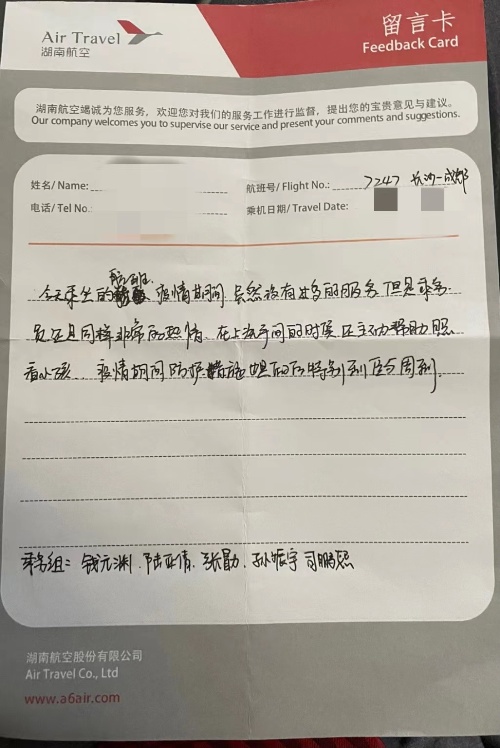 Air Travel
湖南航空
留言卡
Feedback Card
湖南航空竭诚为您服务，欢迎您对我们的服务工作进行监督，提出您的宝贵意见与建议。
Our company welcomes you to supervise our service and present your comments and suggestions.
姓名/ Name:
航班号/ Flight No.: 7247 长沙一成都
电话/ Tel No.:
乘机日期/ Travel Date:
航班
今天乘坐的 疫情期间 虽然没有过多的服务 但是乘务
员还是同样非常的热情。在上洗手间的时候 还主动帮助照
看小孩。疫情期间防护措施 做的特别到位与周到。
乘务组：钱元渊. 陆亚倩. 张勖. 孙振宇 司鹏熙
湖南航空股份有限公司
Air Travel Co., Ltd
www.a6air.com